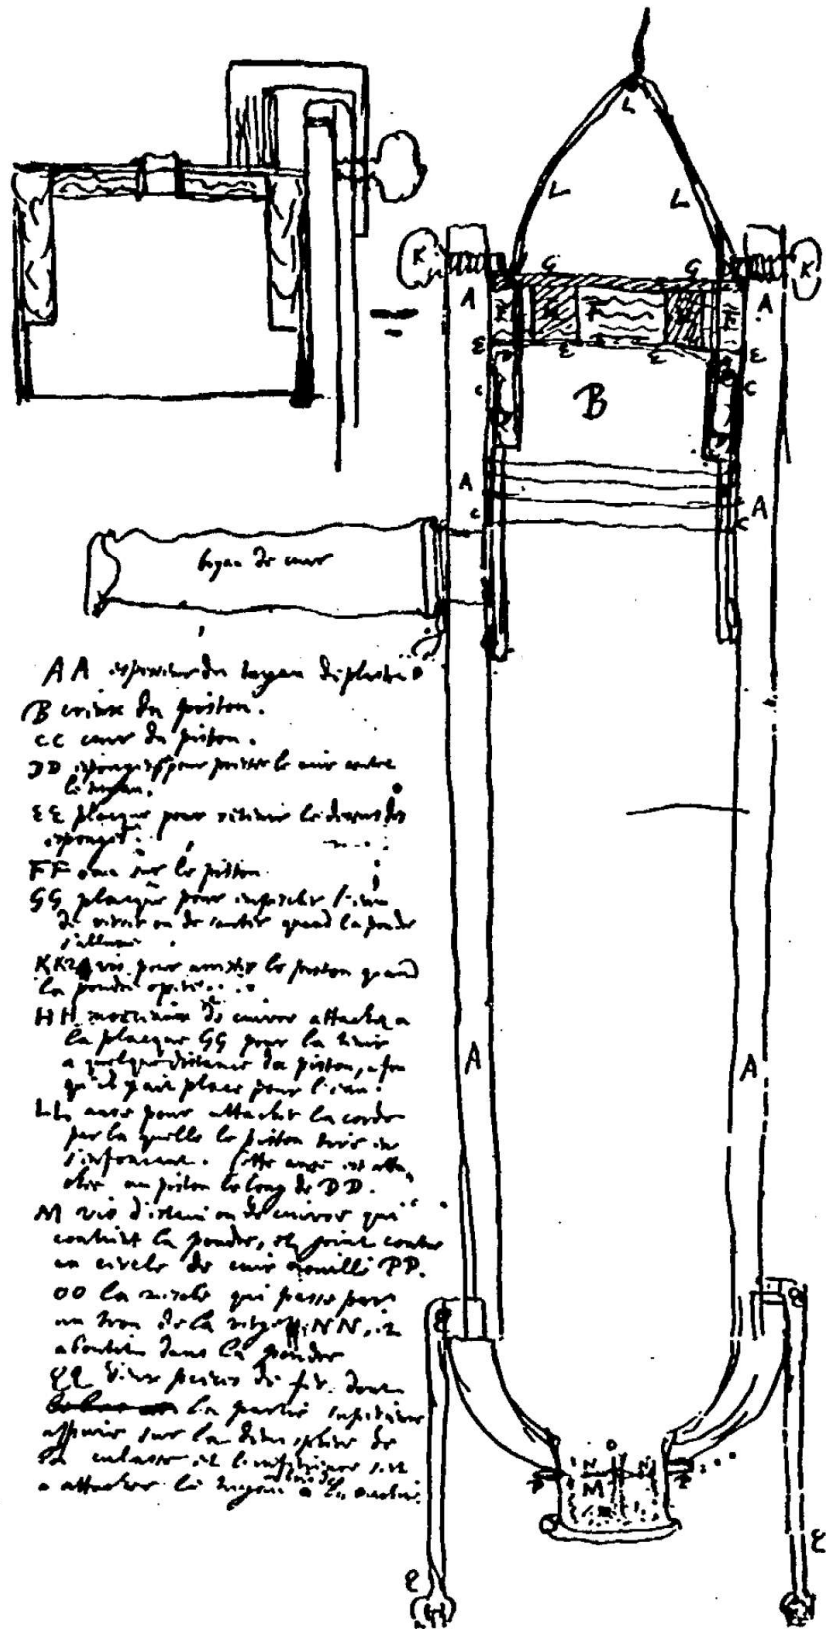 L
L
L
K
G
G
K
A
F
H
F
H
F
A
E
D
E
E
E
C
B
C
A
A
C
C
boyau de cuir
AA espaisseur du tuyau de
B creux du piston.
CC cuir du piston.
DD esponges pour presser le cuir contre
le tuyau.
EE placque pour retenir le dessus des
esponges.
FF eau sur le piston.
GG placque pour empescher l'eau
de ou de sauter quand la poudre
s'allume
KK vis pour arrester le piston quand
la poudre opere.
HH morceaux de cuivre attachez a
la placque GG pour la tenir
a quelque distance du piston, afin
qu'il y ait place pour l'eau.
LL anse pour attacher la corde
par la quelle le piston tire en
s'enfonçant. Cette anse est atta
chee au piston le long de DD.
M vis d'estain ou de cuivre qui
contient la poudre, et joint contre
un circle de cuir mouillé PP.
OO la mesche qui passe par
un trou de la NN, et
aboutit dans la poudre
QQ deux pieces de fer dont
la partie superieure
appuie sur la de
la culasse et l'inferieure sert
a attacher le tuyau a
A
A
Q
Q
O
N
N
P
M
P
Q
Q